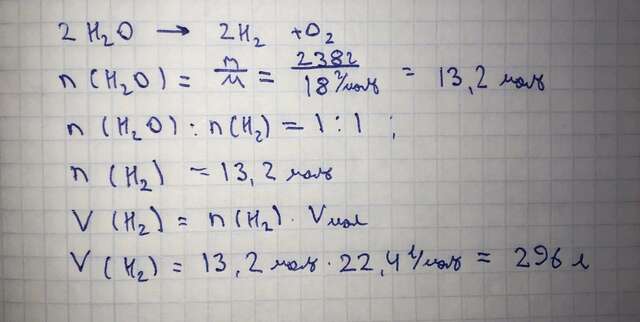 2 H₂O → 2H₂ + O₂
n (H₂O) = m/M = 238г/18 г/моль = 13,2 моль
n (H₂O) : n(H₂) = 1 : 1 ;
n (H₂) = 13,2 моль
V (H₂) = n(H₂) · Vмол
V (H₂) = 13,2 моль · 22,4 л/моль = 296 л